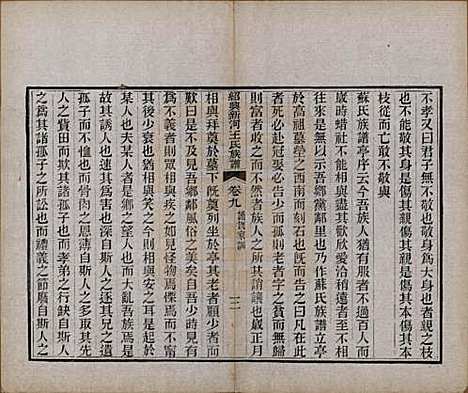 不孝又曰君子無不敬也敬身為大身也者親之枝
枝從而亡敢不敬與
蘇氏族譜亭序云今吾族人猶有服者不過百人而
歲時蜡社不能相與盡其歡欣愛洽稍遠者至不相
往來是無以示吾鄉黨鄰里也乃作蘇氏族譜立亭
於高祖墓塋之西南而刻石也既而告之曰凡在此
者死必赴冠娶妻必告少而孤則老者字之貧而無歸
則富者收之而不然者族人之所共誚讓也歲正月
紹興新河王氏族譜
卷九
譜訓家訓
三
相與拜奠於墓下既奠列坐於亭其老者顧少者而
歎曰是不及見吾鄉鄰風俗之美矣自吾少時見有
為不義者則眾相與疾之如見怪物焉慄焉而不寧
其後少衰也猶相與笑之今則相與安之耳是起於
某人也夫某人者是鄉之望人也而大亂吾族焉是
故其誘人也速其為害也深自斯人之逐其兄之遺
孤子而不恤也而骨肉之恩薄自斯人之多取其先
人之貲田而欺其諸孤子也而孝弟之行缺自斯人
之為其諸孤子之所訟也而禮義之節廢自斯人之